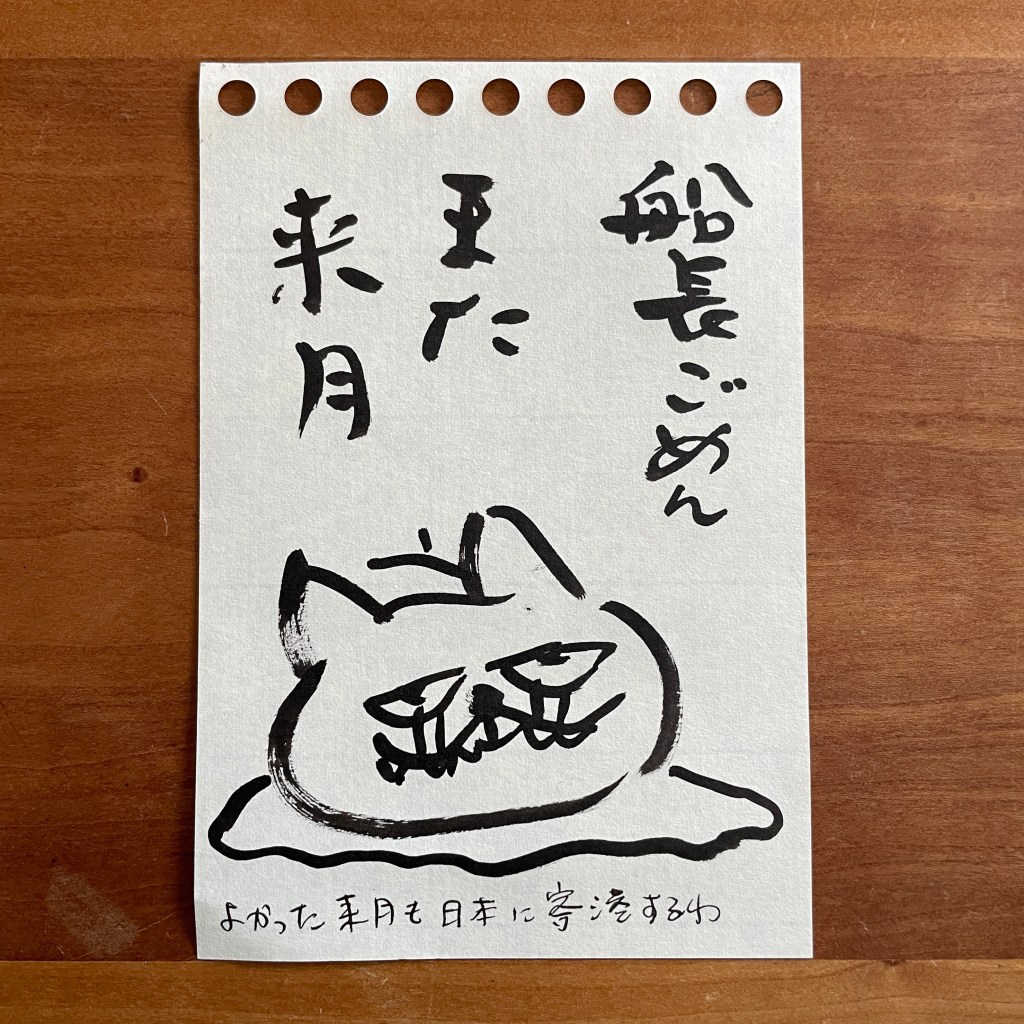 船長ごめん
また
来月
よかった来月も日本に寄港するわ